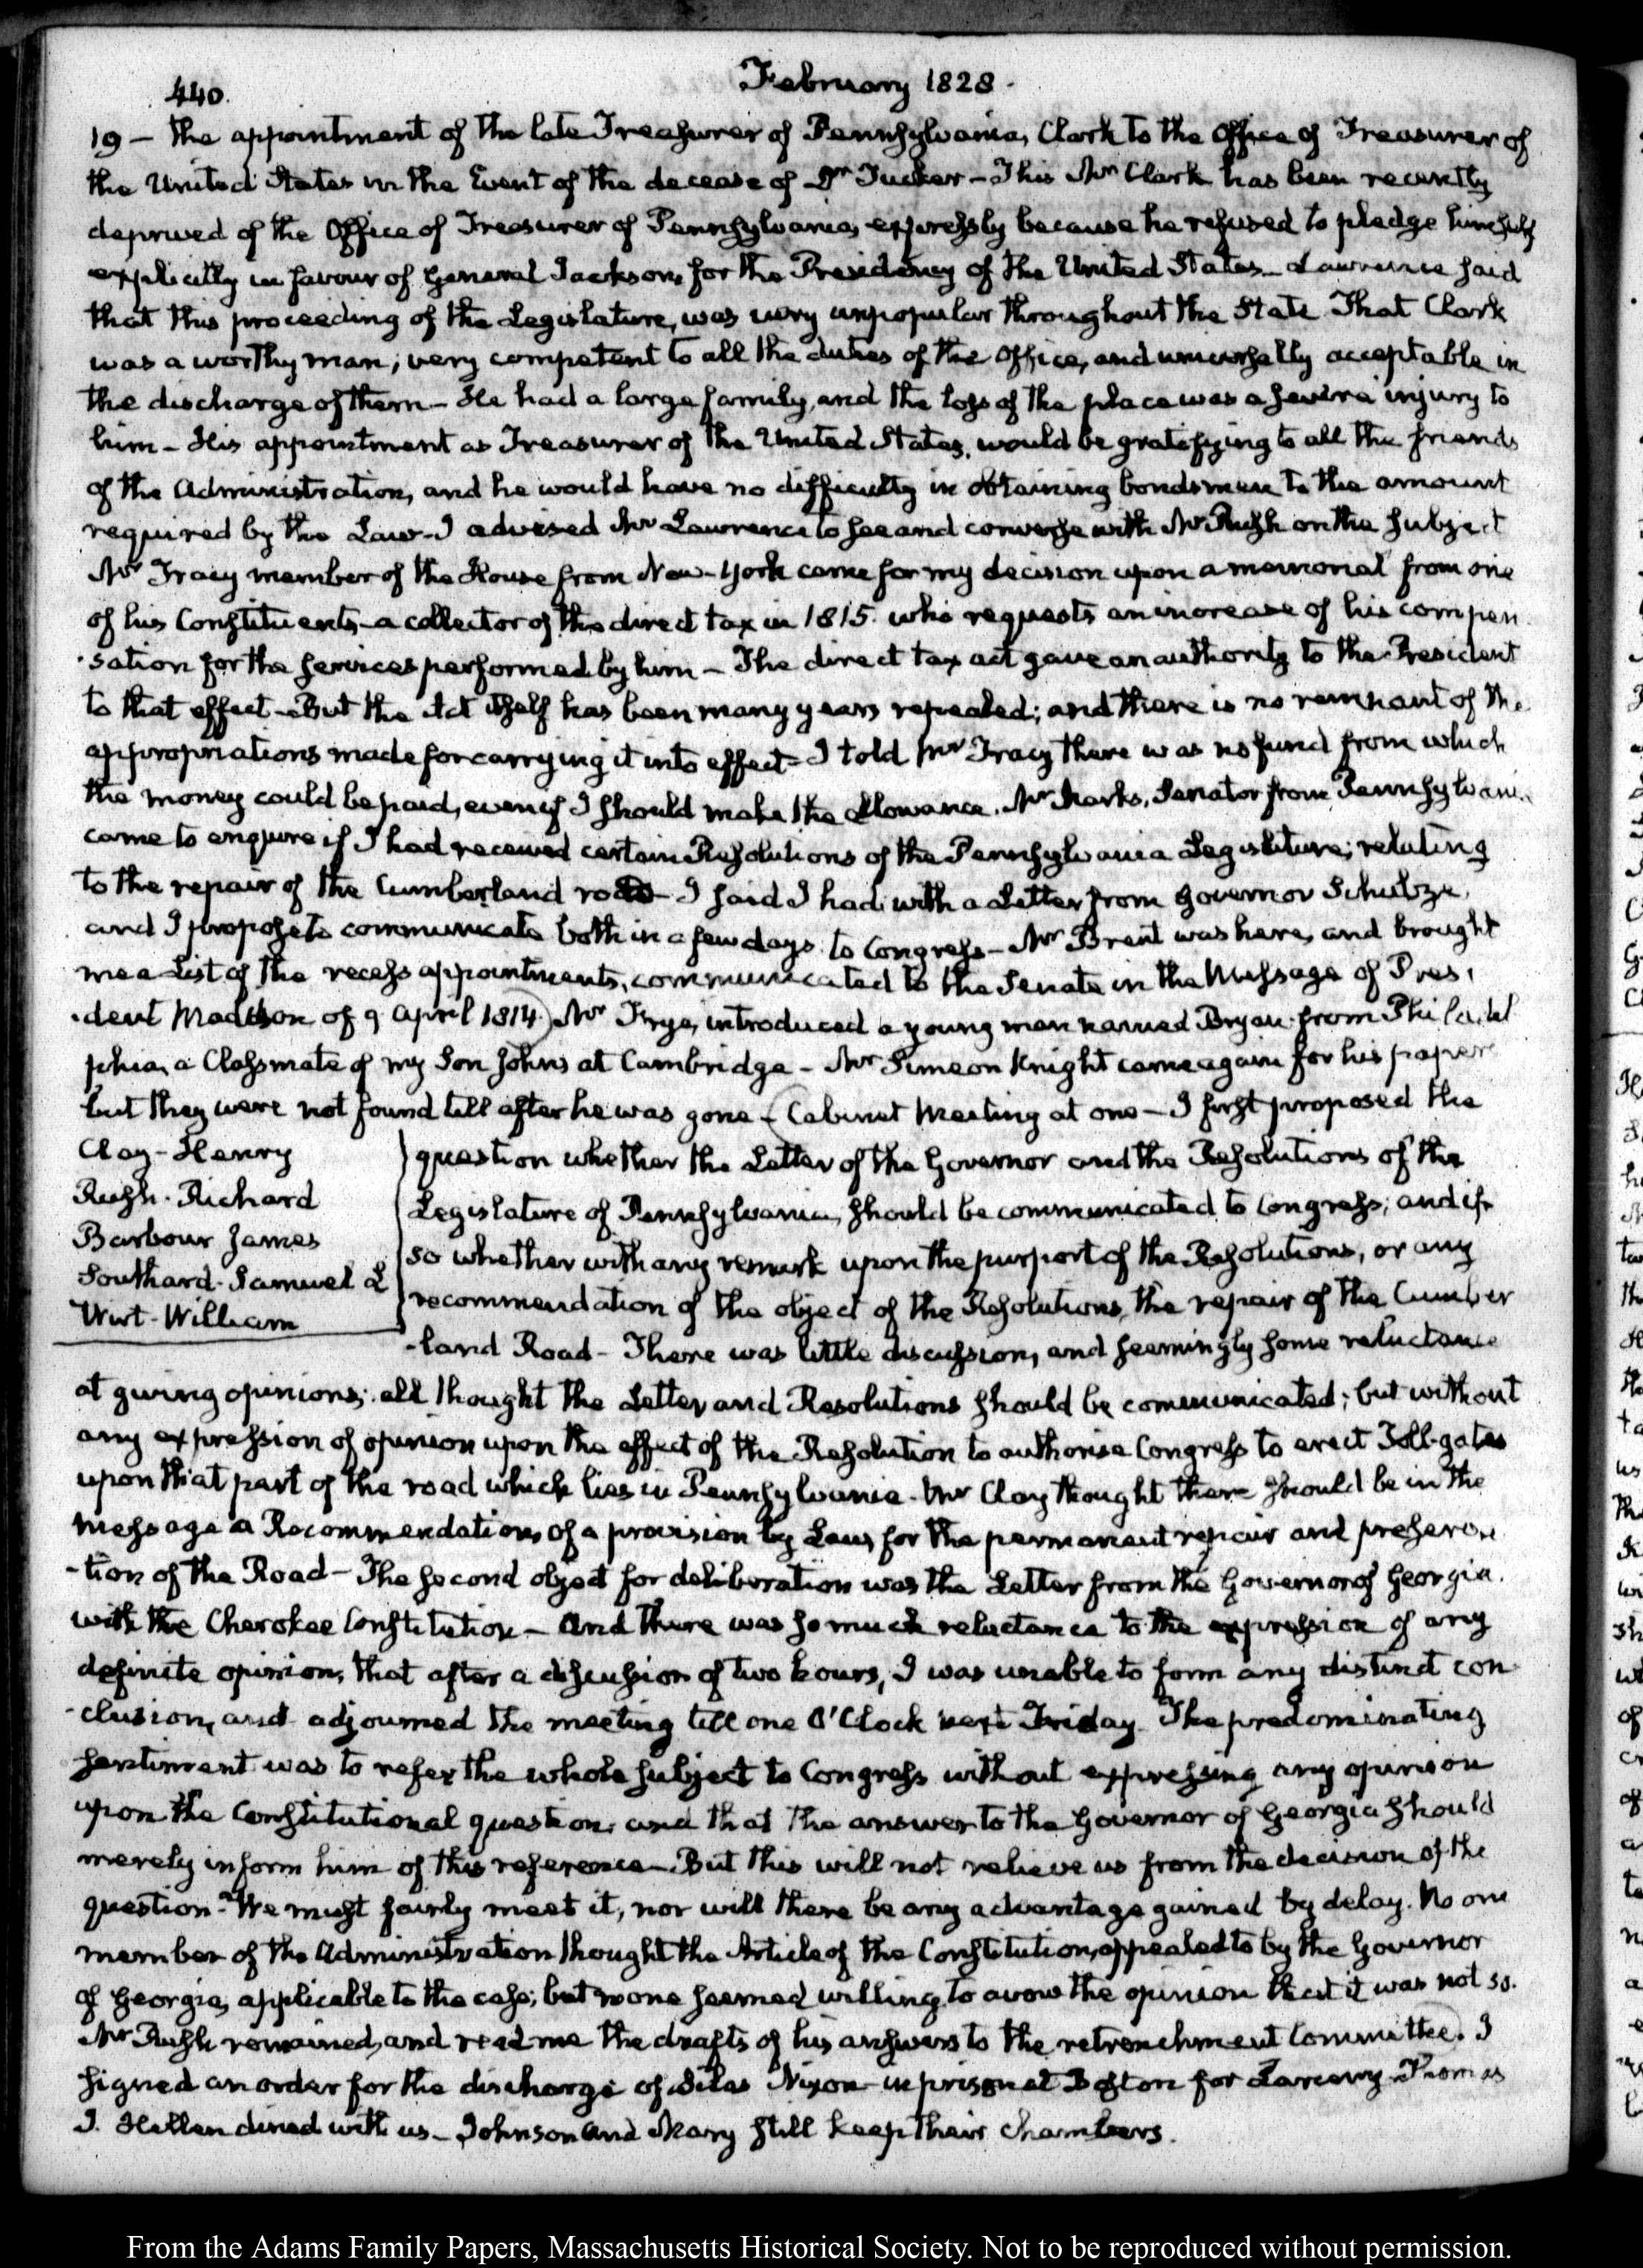 440.
February 1828.
19 — the appointment of the late Treasurer of Pennsylvania, Clark to the Office of Treasurer of
the United States in the Event of the decease of Dr. Tucker — This Mr Clark has been recently
deprived of the Office of Treasurer of Pennsylvania, expressly because he refused to pledge himself
explicitly in favour of General Jackson, for the Presidency of the United States — Lawrence said
that this proceeding of the Legislature, was very unpopular throughout the State That Clark
was a worthy man; very competent to all the duties of the Office, and universally acceptable in
the discharge of them — He had a large family, and the loss of the place was a severe injury to
him — His appointment as Treasurer of the United States, would be gratifying to all the friends
of the Administration, and he would have no difficulty in obtaining bondsmen to the amount
required by the Law — I advised Mr Lawrence to see and converse with Mr Rush on the subject
Mr Tracy member of the House from New-York came for my decision upon a memorial from one
of his Constituents — a collector of the direct tax in 1815. who requests an increase of his compen
-sation for the services performed by him — The direct tax act gave an authority to the President
to that effect — But the Act itself has been many years repealed; and there is no remnant of the
appropriations made for carrying it into effect — I told Mr Tracy there was no fund from which
the money could be paid, even if I should make the allowance. Mr Marks, Senator from Pennsylvania
came to enquire if I had received certain Resolutions of the Pennsylvania Legislature; relating
to the repair of the Cumberland road — I said I had, with a Letter from Governor Schulze,
and I propose to communicate both in a few days to Congress — Mr Brent was here, and brought
me a List of the recess appointments, communicated to the Senate in the Message of Presi
-dent Madison of 9 April 1814. Mr Frye, introduced a young man named Bryan from Philadel
phia, a Classmate of my Son John's at Cambridge — Mr Simeon Knight came again for his papers
but they were not found till after he was gone — Cabinet Meeting at one — I first proposed the
Clay - Henry
Rush - Richard
Barbour James
Southard - Samuel L
Wirt - William
question whether the Letter of the Governor and the Resolutions of the
Legislature of Pennsylvania, should be communicated to Congress; and if
so whether with any remark upon the purport of the Resolutions, or any
recommendation of the object of the Resolutions, the repair of the Cumber
-land Road — There was little discussion, and seemingly some reluctance
at giving opinions; all thought the Letter and Resolutions should be communicated; but without
any expression of opinion upon the effect of the Resolution to authorise Congress to erect Toll-gates
upon that part of the road which lies in Pennsylvania. Mr Clay thought there should be in the
message a Recommendation, of a provision by Law, for the permanent repair and preserva
-tion of the Road — The second object for deliberation was the Letter from the Governor of Georgia.
with the Cherokee Constitution — And there was so much reluctance to the expression of any
definite opinion, that after a discussion of two hours, I was unable to form any distinct con
-clusion, and adjourned the meeting till one O'Clock next Friday. The predominating
sentiment was to refer the whole subject to Congress without expressing any opinion
upon the Constitutional question, and that the answer to the Governor of Georgia should
merely inform him of this reference — But this will not relieve us from the decision of the
question — We must fairly meet it, nor will there be any advantage gained by delay. No one
member of the Administration thought the Article of the Constitution, appealed to by the Governor
of Georgia, applicable to the case; but no one seemed willing to avow the opinion that it was not so.
Mr Rush remained, and read me the drafts of his answers to the retrenchment Committee. I
signed an order for the discharge of Silas Nixon in prison at Boston for Larceny — Thomas
J. Hellen dined with us — Johnson and Mary still keep their chambers.
From the Adams Family Papers, Massachusetts Historical Society. Not to be reproduced without permission.